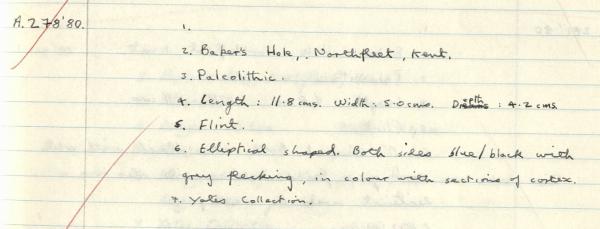 A.278'80.
1.
2. Baker's Hole, Northfleet, Kent.
3. Paleolithic.
4. Length: 11.8 cms. Width: 5.0 cms. Depth: 4.2 cms.
5. Flint.
6. Elliptical shaped. Both sides blue/black with
grey flecking, in colour with sections of cortex.
7. Yates Collection.